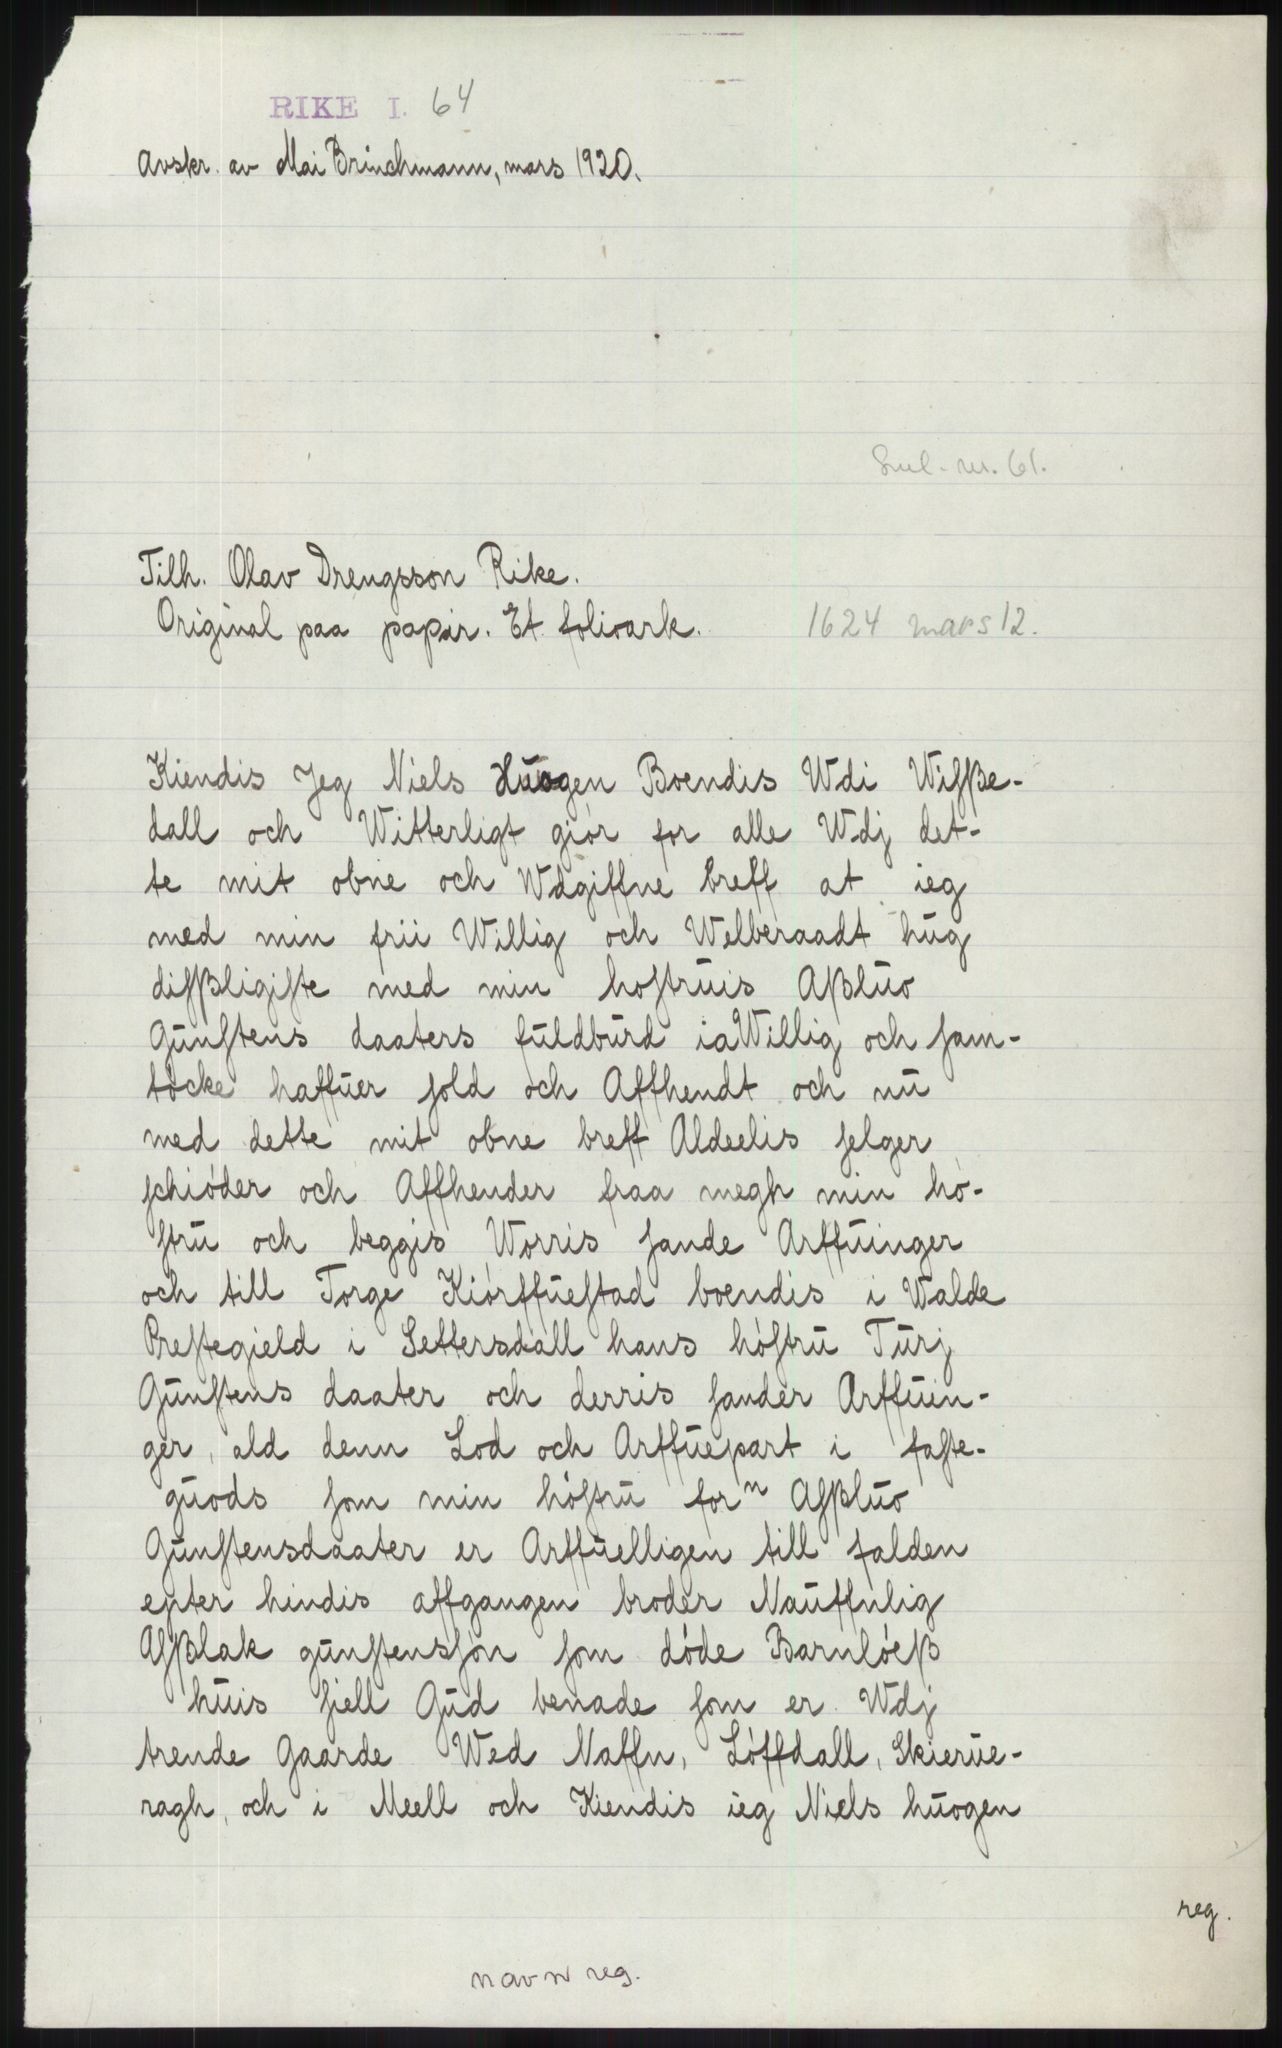 RIKE I. 64
Avskr. av Mai Brinchmann, mars 1920.
nr. 61.
Tilh. Olav Drengsson Rike.
Original paa papir. Et folioark.
1624 mars 12.
Kiendis Jeg Niels Huogen Boendis Wdi Wiſße-
dall och Witterligt giör for alle Wdj det-
te mit obne och Wdgiffne breff at ieg
med min frii Willig och Welberaadt hŭg
diſßligiſte med min hoſtrŭis Aßlŭo
Gŭnſtens daaters fŭldbŭrd ia Willig och ſam-
töcke haffŭer ſold och Affhendt och nŭ
med dette mit obne breff Aldeelis ſelger
ſchióder och Affhender fraa megh min hó-
ſtrŭ och beggis Worris ſande Arffŭinger
och till Torge Kiórffŭeſtad boendis i Walde
Preſtegield i Settersdall hans hóſtrŭ Tŭrj
Gŭnſtens daater och derris ſander Arffŭin-
ger, ald denn Lod och Arffŭepart i faſte-
gŭods ſom min hóſtrŭ forⁿ Aſßlŭo
Gŭnſtensdaater er Arffŭelligen till falden
epter hindis affgangen broder Naŭffnlig
Aſßlak gŭnſtensſón ſom dóde Barnlóeß
hŭis ſiell Gŭd benade ſom er Wdj
trende Gaarde Wed Naffn, Lóffdall, Skierŭe-
ragh, och i Meell och Kiendis ieg Niels hŭogen
reg.
navn reg.